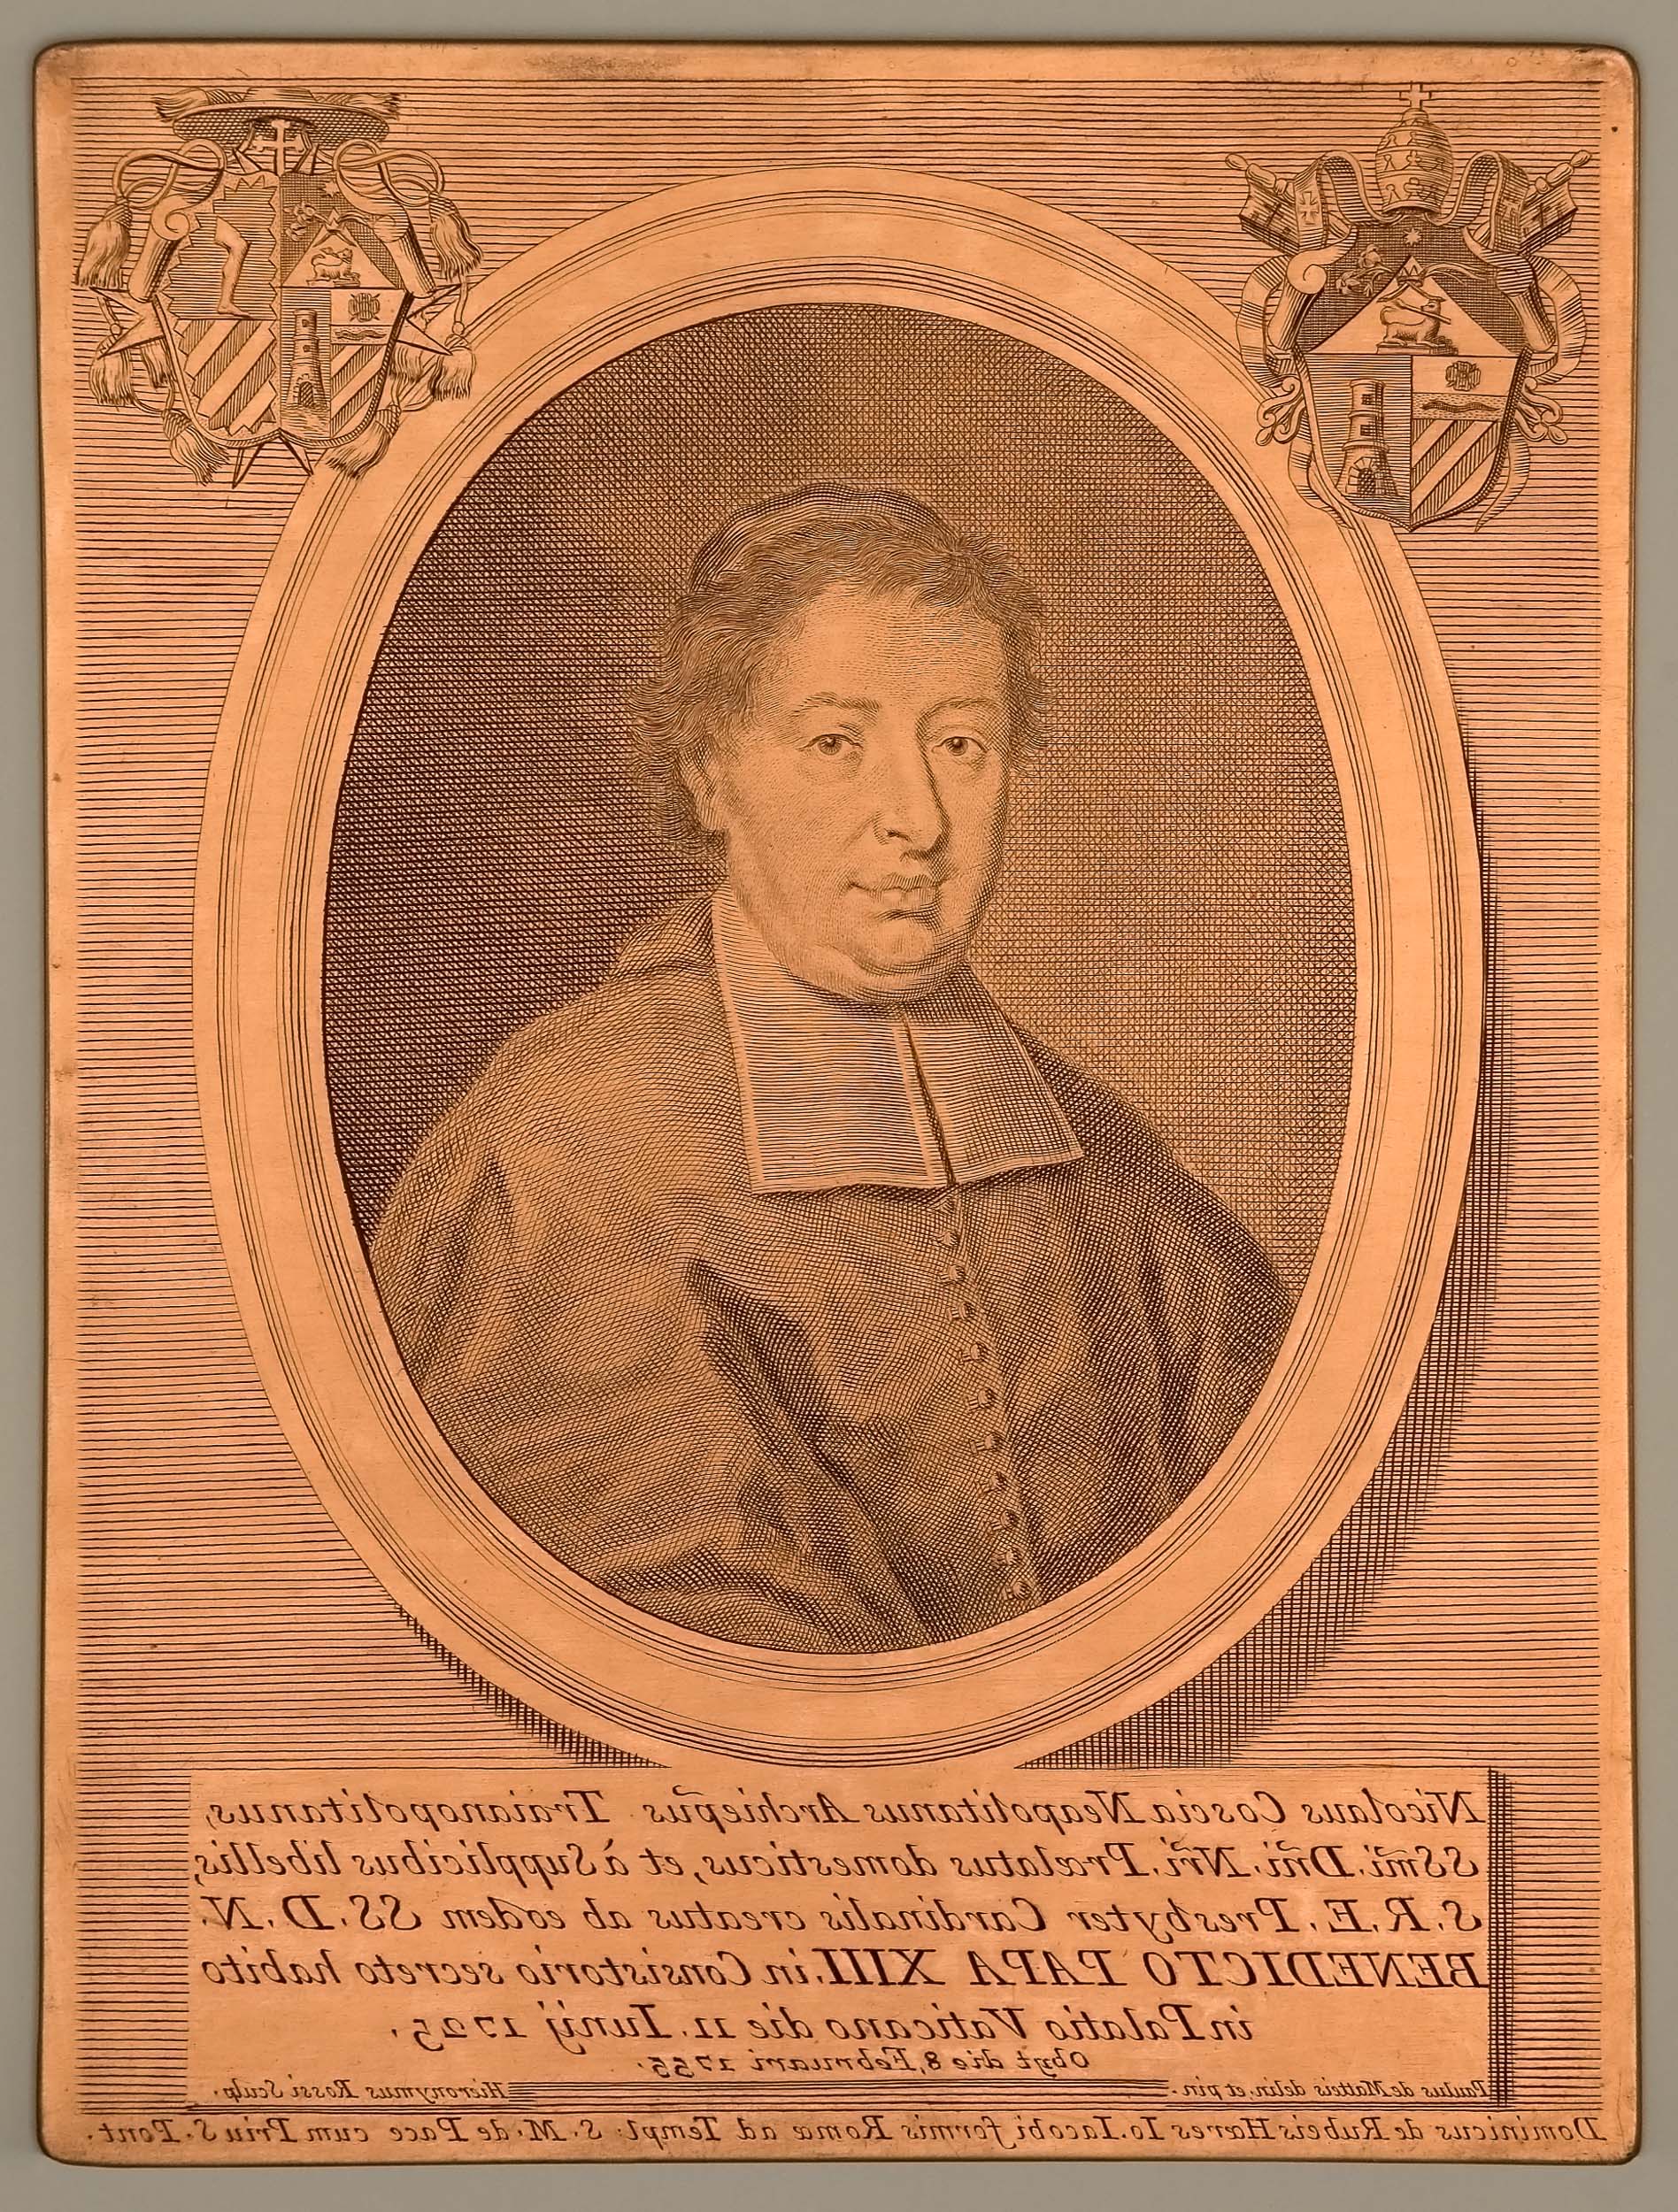 Nicolaus Coscia Neapolitanus Archiep̃us Traianopolitanus,
SSm̃i. Dñi. Nr̃i. Prælatus domesticus, et à Supplicibus libellis,
S. R. E. Presbyter Cardinalis creatus ab eodem SS. D. N.
BENEDICTO PAPA XIII. in Consistorio secreto habito
in Palatio Vaticano die 11. Iunij 1725.
Obyt die 8, Februari 1755.
Paulus de Matteis delin. et pin. Hieronymus Rossi Sculp.
Dominicus de Rubeis Hæres Io. Iacobi formis Romæ ad Templ: S. M. de Pace cum Priu S. Pont.